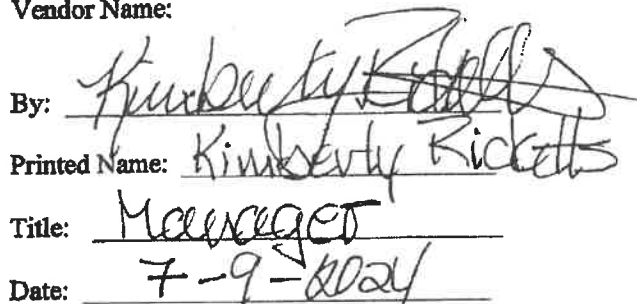 Vendor Name:
By: Kimberly Ricketts
Printed Name: Kimberly Ricketts
Title: Manager
Date: 7-9-2024